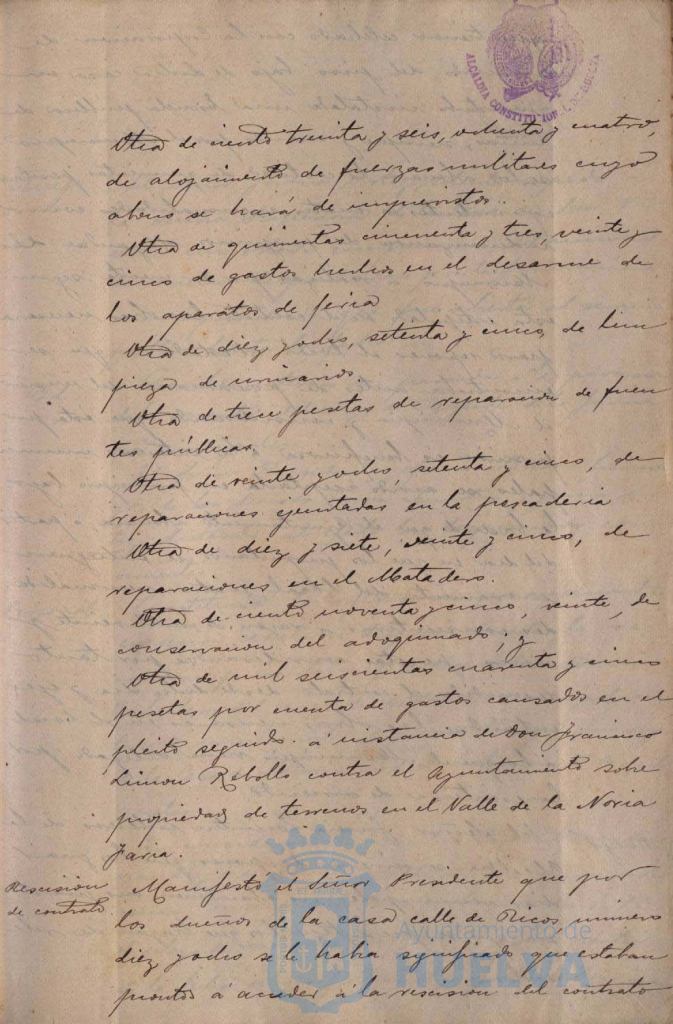 ALCALDIA CONSTITUCIONAL DE HUELVA
Otra de ciento treinta y seis, ochenta y cuatro,
de alojamiento de fuerzas militares cuyo
abono se hará de imprevistos.
Otra de quinientas cincuenta y tres, veinte y
cinco de gastos hechos en el desarme de
los aparatos de feria
Otra de diez y ocho, setenta y cinco, de lim
pieza de urinarios.
Otra de trece pesetas de reparacion de fuen
tes públicas.
Otra de veinte y ocho, setenta y cinco, de
reparaciones ejecutadas en la pescaderia
Otra de diez y siete, veinte y cinco, de
reparaciones en el Matadero.
Otra de ciento noventa y cinco, veinte, de
conservacion del adoquinado; y
Otra de mil seiscientas cuarenta y cinco
pesetas por cuenta de gastos causados en el
pleito seguido á instancia de Don Francisco
Limon Rebollo contra el Ayuntamiento sobre
propiedad de terrenos en el Valle de la Noria
Faria.
Rescision
de contrato
Manifestó el Señor Presidente que por
los dueños de la casa calle de Ricos, número
diez y ocho se le habia significado que estaban
prontos á acceder á la rescision del contrato
Ayuntamiento de
HUELVA